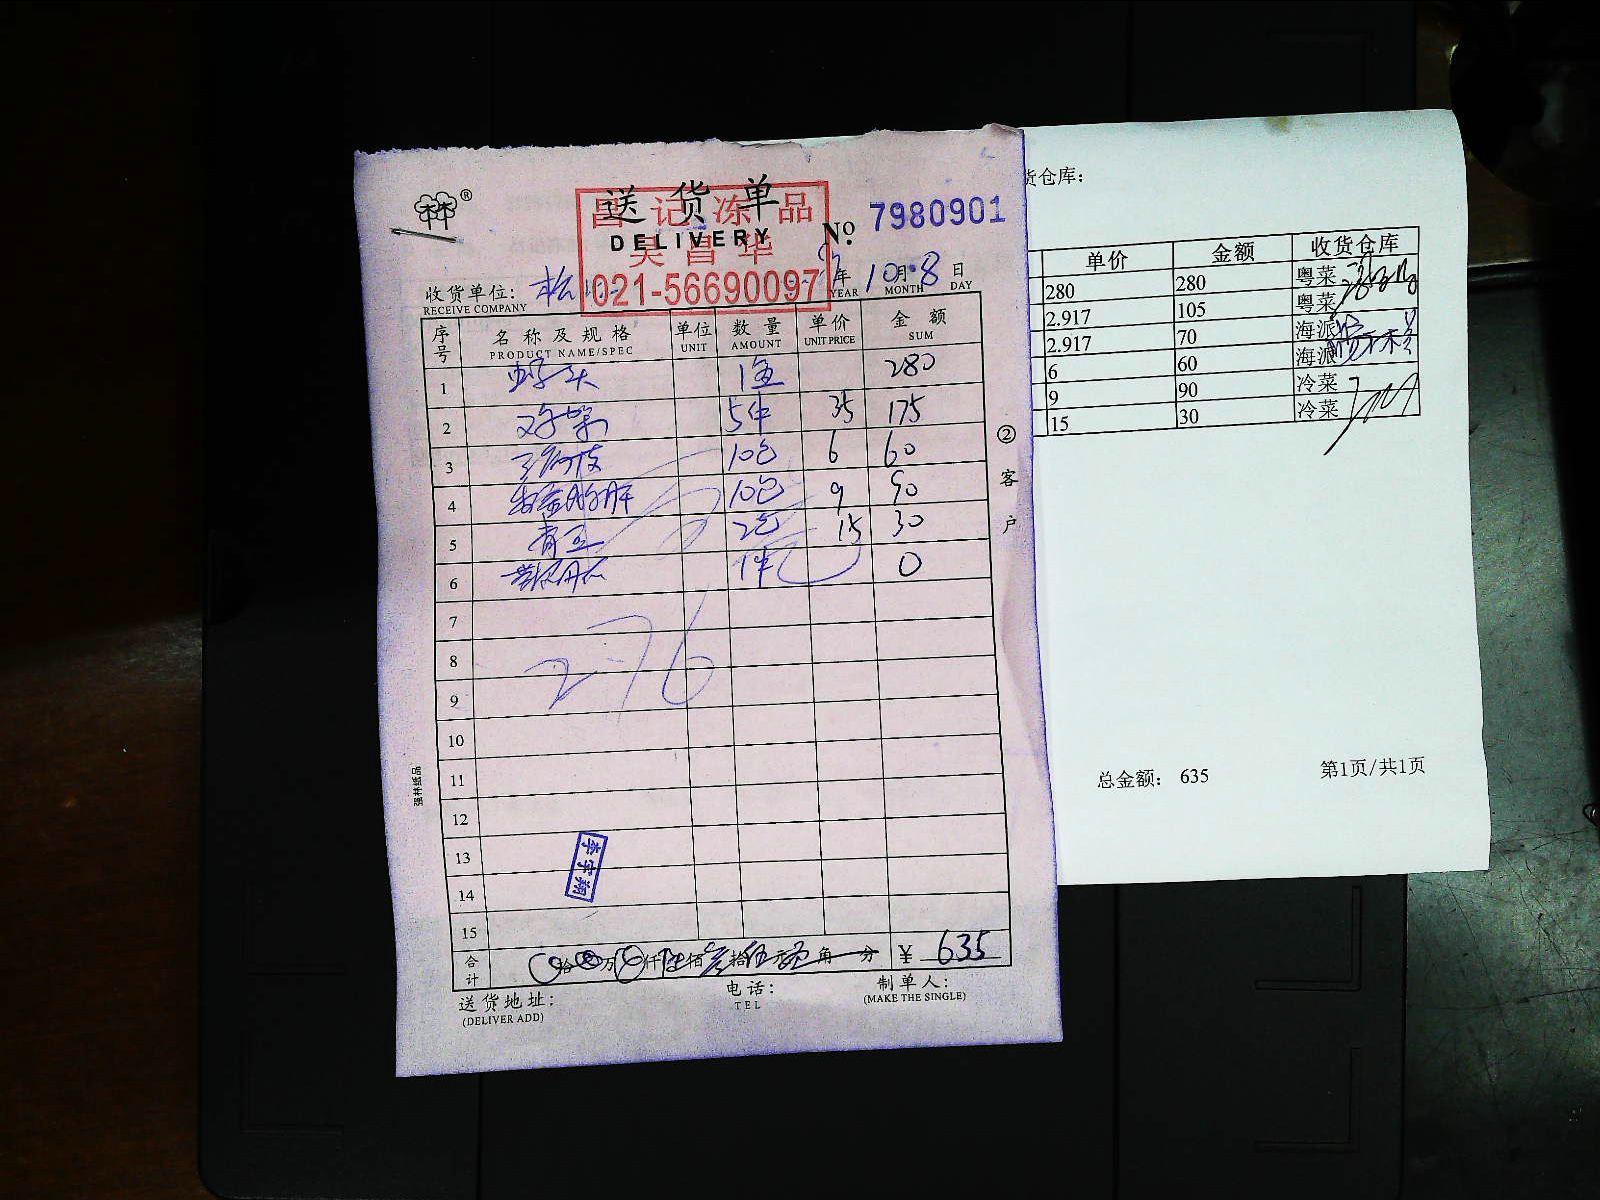 送货单
DELIVERY
No. 7980901
昌记冻品
吴昌华
021-56690097
年 10月 8日
YEAR MONTH DAY
收货单位：松
RECEIVE COMPANY
序号 名称及规格 单位 数量 单价 金额
PRODUCT NAME/SPEC UNIT AMOUNT UNIT PRICE SUM
1 虾头 280
2 鸡架 5件 35 175
3 10包 6 60
4 10包 9 90
5 青豆 2包 15 30
6 1件 0
7
8
9
10
11
12
13
14
15
276
李宇翔
合计 拾 万 仟 佰 拾 元 角 分 ¥ 635
送货地址：
(DELIVER ADD)
电话：
TEL
制单人：
(MAKE THE SINGLE)
②客户
强林纸品
货仓库：
单价 金额 收货仓库
280 280 粤菜
2.917 105 粤菜
2.917 70 海派
6 60 海派
9 90 冷菜
15 30 冷菜
总金额： 635
第1页/共1页